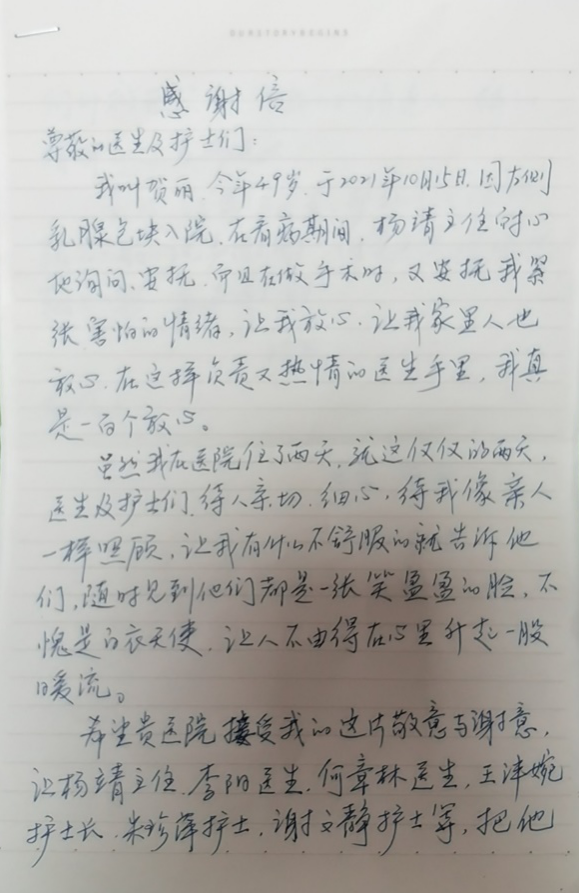 感谢信
尊敬的医生及护士们：
我叫贺丽，今年49岁，于2021年10月15日，因右侧
乳腺包块入院，在看病期间，杨靖主任耐心
地询问、安抚，而且在做手术时，又安抚我紧
张害怕的情绪，让我放心，让我家里人也
放心，在这样负责又热情的医生手里，我真
是一百个放心。
虽然我在医院住了两天，就这仅仅的两天，
医生及护士们，待人亲切，细心，待我像亲人
一样照顾，让我有什么不舒服的就告诉他
们，随时见到他们都是一张笑盈盈的脸，不
愧是白衣天使，让人不由得在心里升起一股
暖流。
希望贵医院接受我的这片敬意与谢意，
让杨靖主任，李阳医生，何章林医生，王津婉
护士长，朱珍萍护士，谢文静护士等，把他